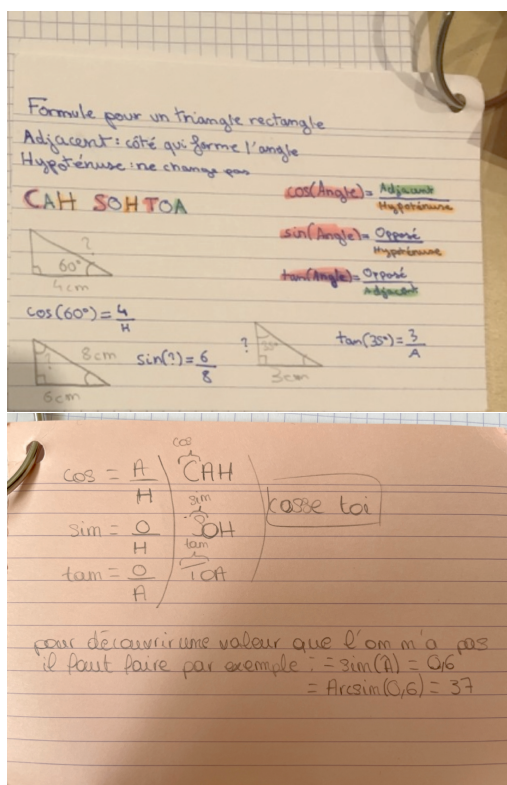 Formule pour un triangle rectangle
Adjacent : côté qui forme l'angle
Hypoténuse : ne change pas
CAH SOH TOA
cos(Angle) = Adjacent / Hypoténuse
sin(Angle) = Opposé / Hypoténuse
tan(Angle) = Opposé / Adjacent
?
60°
4cm
cos(60°) = 4/H
?
8cm
6cm
sin(?) = 6/8
?
35°
3cm
tan(35°) = 3/A
cos = A/H
cos
CAH
casse toi
sin = O/H
sin
SOH
tan = O/A
tan
TOA
pour découvrir une valeur que l'on n'a pas
il faut faire par exemple : = sin(A) = 0,6
= Arcsin(0,6) = 37